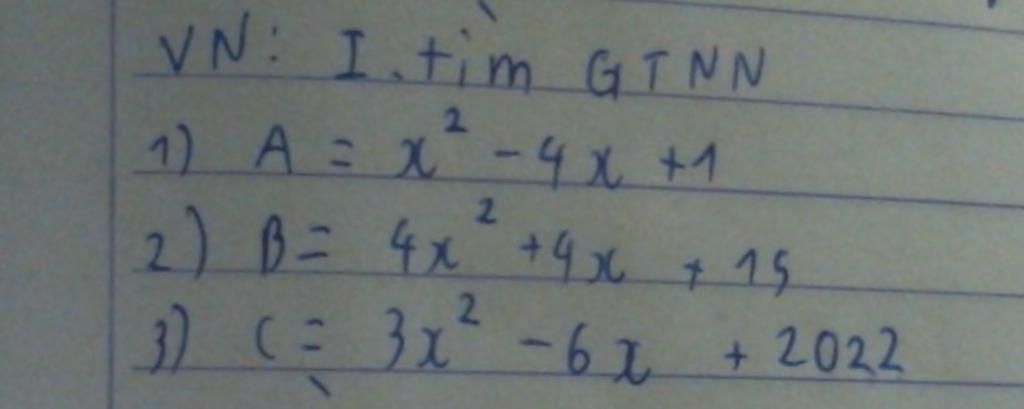 VN: I. tìm GTNN
1) A = x² - 4x + 1
2) B = 4x² + 4x + 15
3) C = 3x² - 6x + 2022